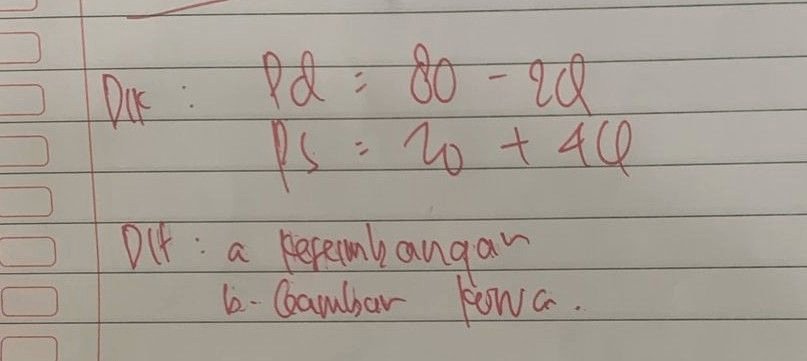 Dik : Pd = 80 - 2Q
Ps = 20 + 4Q
Dit : a keseimbangan
b. Gambar kurva.